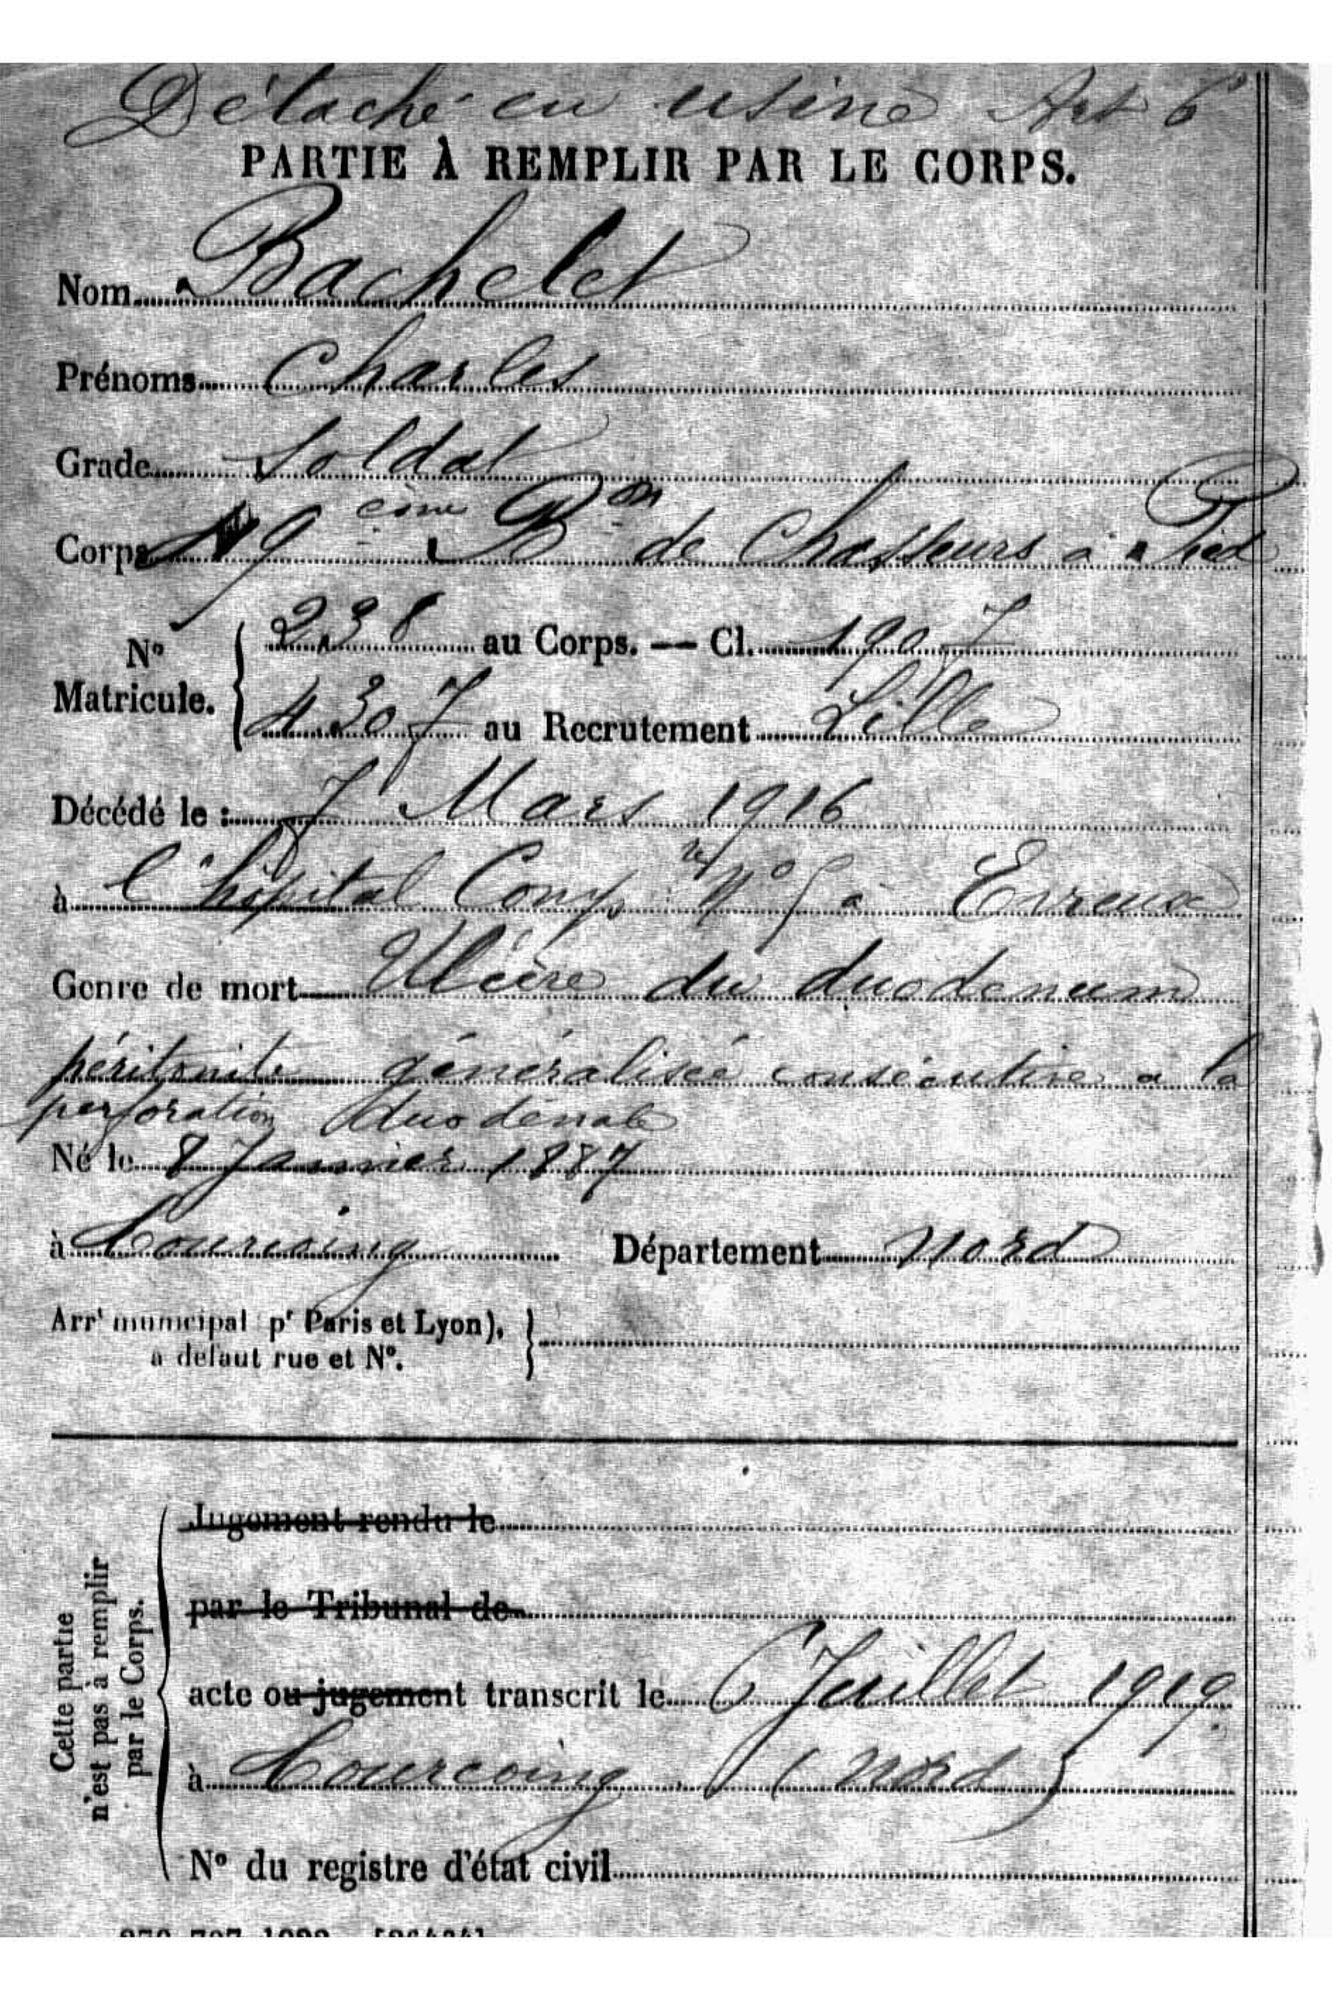 Détaché en usine Art 6
PARTIE À REMPLIR PAR LE CORPS.
Nom Bachelet
Prénoms Charles
Grade Soldat
Corps 9ème Bon de Chasseurs à Pied
No Matricule. { 238 au Corps. — Cl. 1907
4307 au Recrutement Lille
Décédé le : 7 Mars 1916
à l'hôpital Comp re No 5 à Evreux
Genre de mort Ulcère du duodenum
péritonite généralisée consécutive a la
perforation duodénale
Né le 8 Janvier 1887
à Tourcoing Département Nord
Arrt municipal pr Paris et Lyon),
a defaut rue et No.
Cette partie
n'est pas à remplir
par le Corps.
Jugement rendu le
par le Tribunal de
acte ou jugement transcrit le 6 Juillet 1919.
à Tourcoing (Nord)
No du registre d'état civil